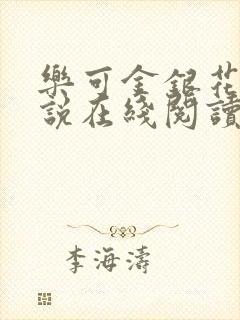 樂可金銀花
說在綫閱讀
李海濤